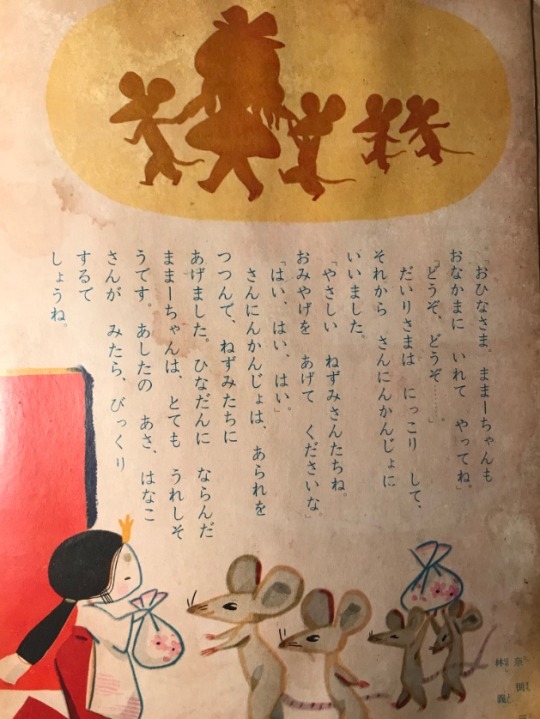 「おひなさま、ままーちゃんも
おなかまに いれて やってね」
「どうぞ、どうぞ……」
だいりさまは にっこり して、
それから さんにんかんじょに
いいました。
「やさしい ねずみさんたちね。
おみやげを あげて くださいな」
「はい、はい、はい」
さんにんかんじょは、あられを
つつんで、ねずみたちに
あげました。ひなだんに ならんだ
ままーちゃんは、とても うれしそ
うです。あしたの あさ、はなこ
さんが みたら、びっくり
するで
しょうね。